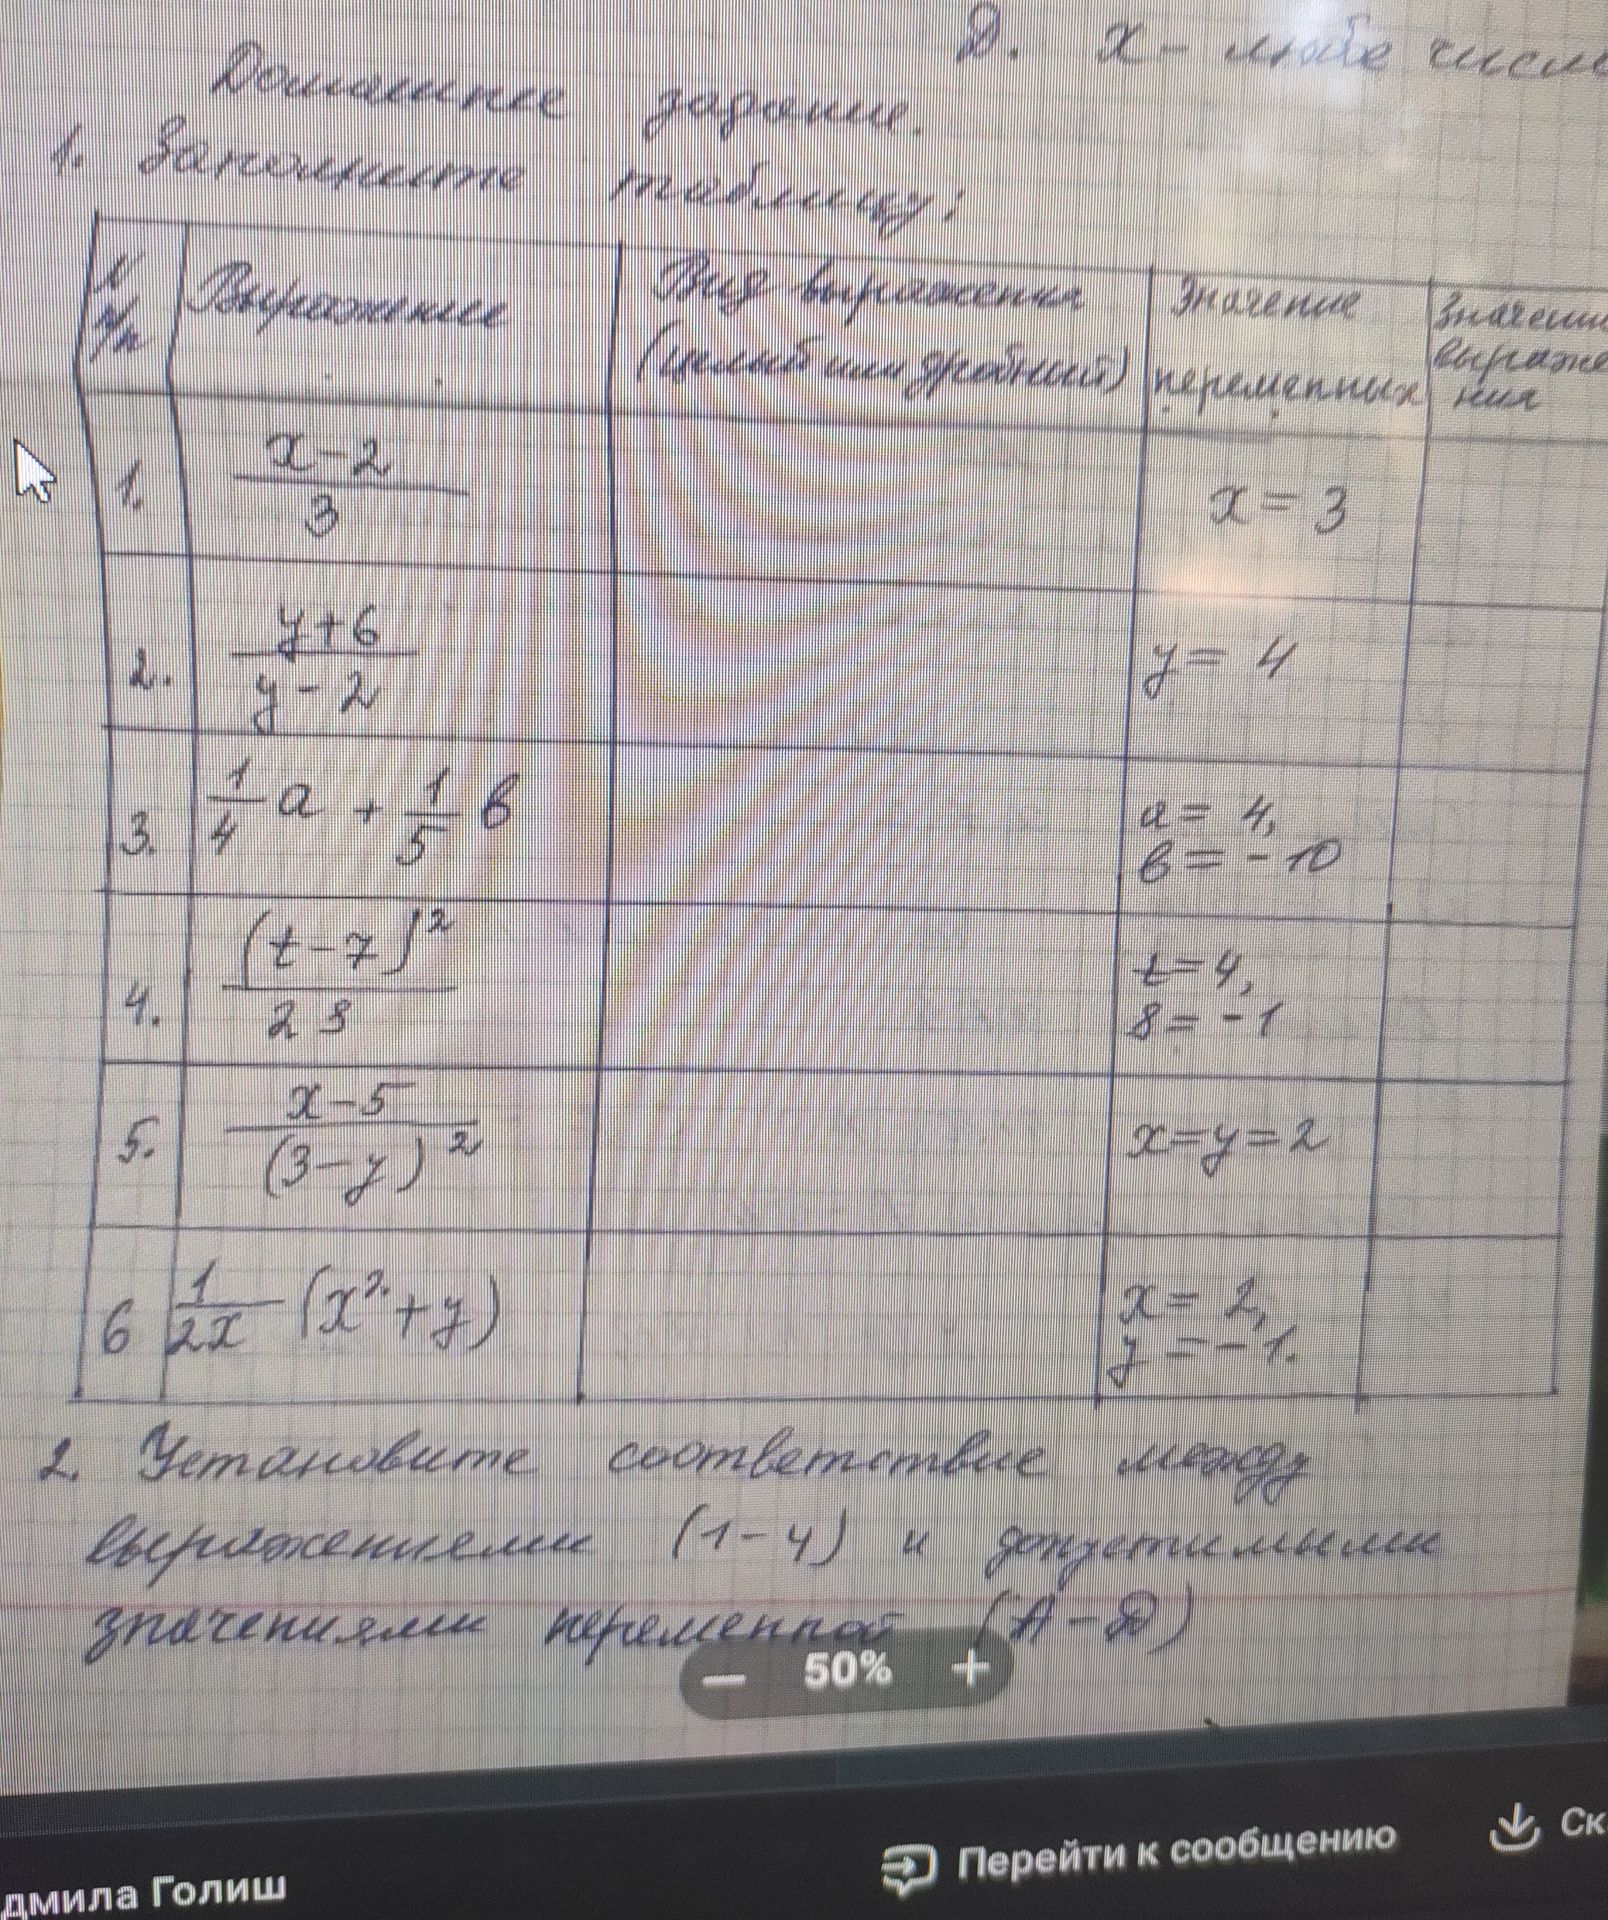 Д. x - любое число
Домашнее задание.
1. Заполните таблицу:
N п/п | Выражение | Вид выражения (целый или дробный) | Значение переменных | Значение выражения
1. | (x-2)/3 | | x = 3 |
2. | (y+6)/(y-2) | | y = 4 |
3. | 1/4 a + 1/5 b | | a = 4, b = -10 |
4. | (t-7)²/(2s) | | t = 4, s = -1 |
5. | (x-5)/(3-y)² | | x = y = 2 |
6 | 1/(2x) (x²+y) | | x = 2, y = -1. |
2. Установите соответствие между
выражениями (1-4) и допустимыми
значениями переменной (А-Д)
50%
Перейти к сообщению
дмила Голиш